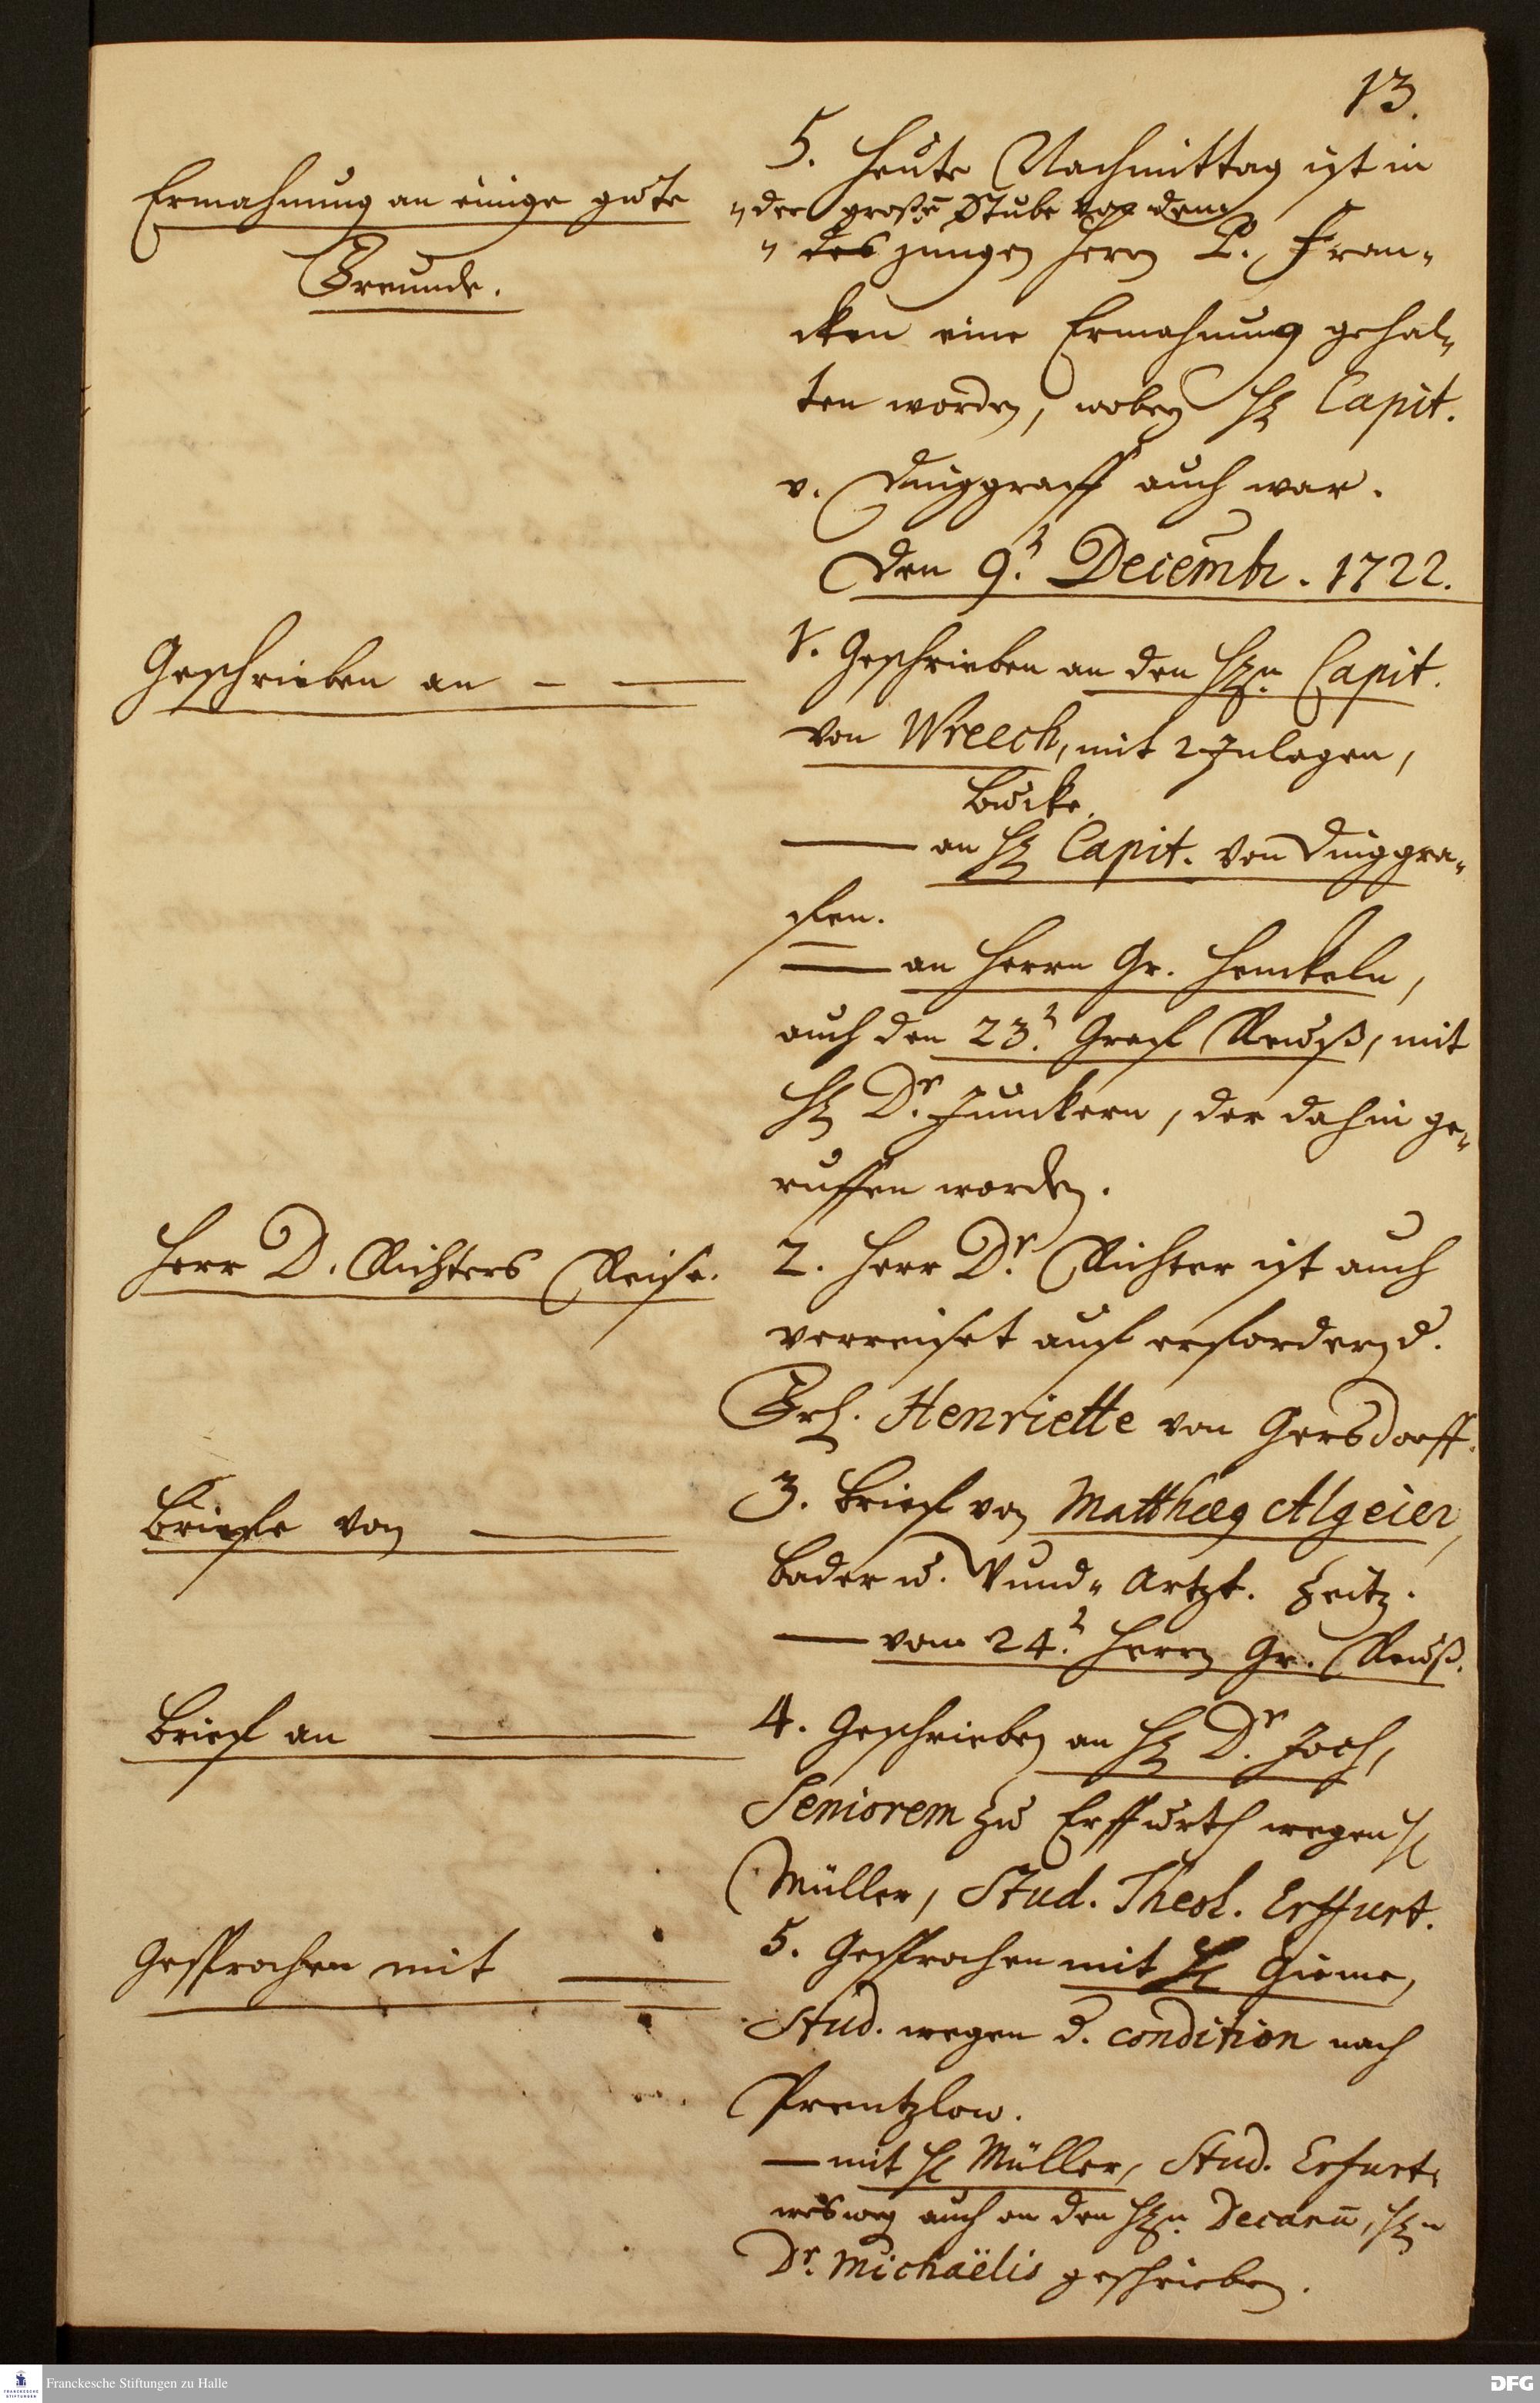 13.
5. Heute Nachmittag ist in
Ermahnung an einige gute
Freunde.
der großen Stube von dem
des jungen Herrn P. Fran-
cken eine Ermahnung gehal-
ten worden, wobey H. Capit.
v. Dinggraff auch war.
Den 9. Decembr. 1722.
Geschrieben an
1. Geschrieben an den Hrn. Capit.
von Wreech, mit 2 Inlagen,
Bucke.
an H. Capit. von Dinggra-
fen.
an Herrn Gr. Henckeln,
auch den 23. Graf Reuß, mit
H. Dr. Junckern, der dahin ge-
ruffen worden.
Herr D. Richters Reise.
2. Herr Dr. Richter ist auch
verreiset auf erfordern d.
Frl. Henriette von Gersdorff.
Briefe von
3. Brief von Matthaeo Algeier,
Bader u. Wund-Artzt. Zeitz.
vom 24. Herrn Gr. Reuß.
Brief an
4. Geschrieben an H. Dr. Joch,
Seniorem zu Erffurth wegen H.
Müller, Stud. Theol. Erffurt.
Gesprochen mit
5. Gesprochen mit H. Gieme,
Stud. wegen d. condition nach
Prentzlow.
mit H. Müller, Stud. Erfurt.
weswegen auch an den Hrn. Decanū, Hrn
Dr. Michaëlis geschrieben.
Franckesche Stiftungen zu Halle
DFG